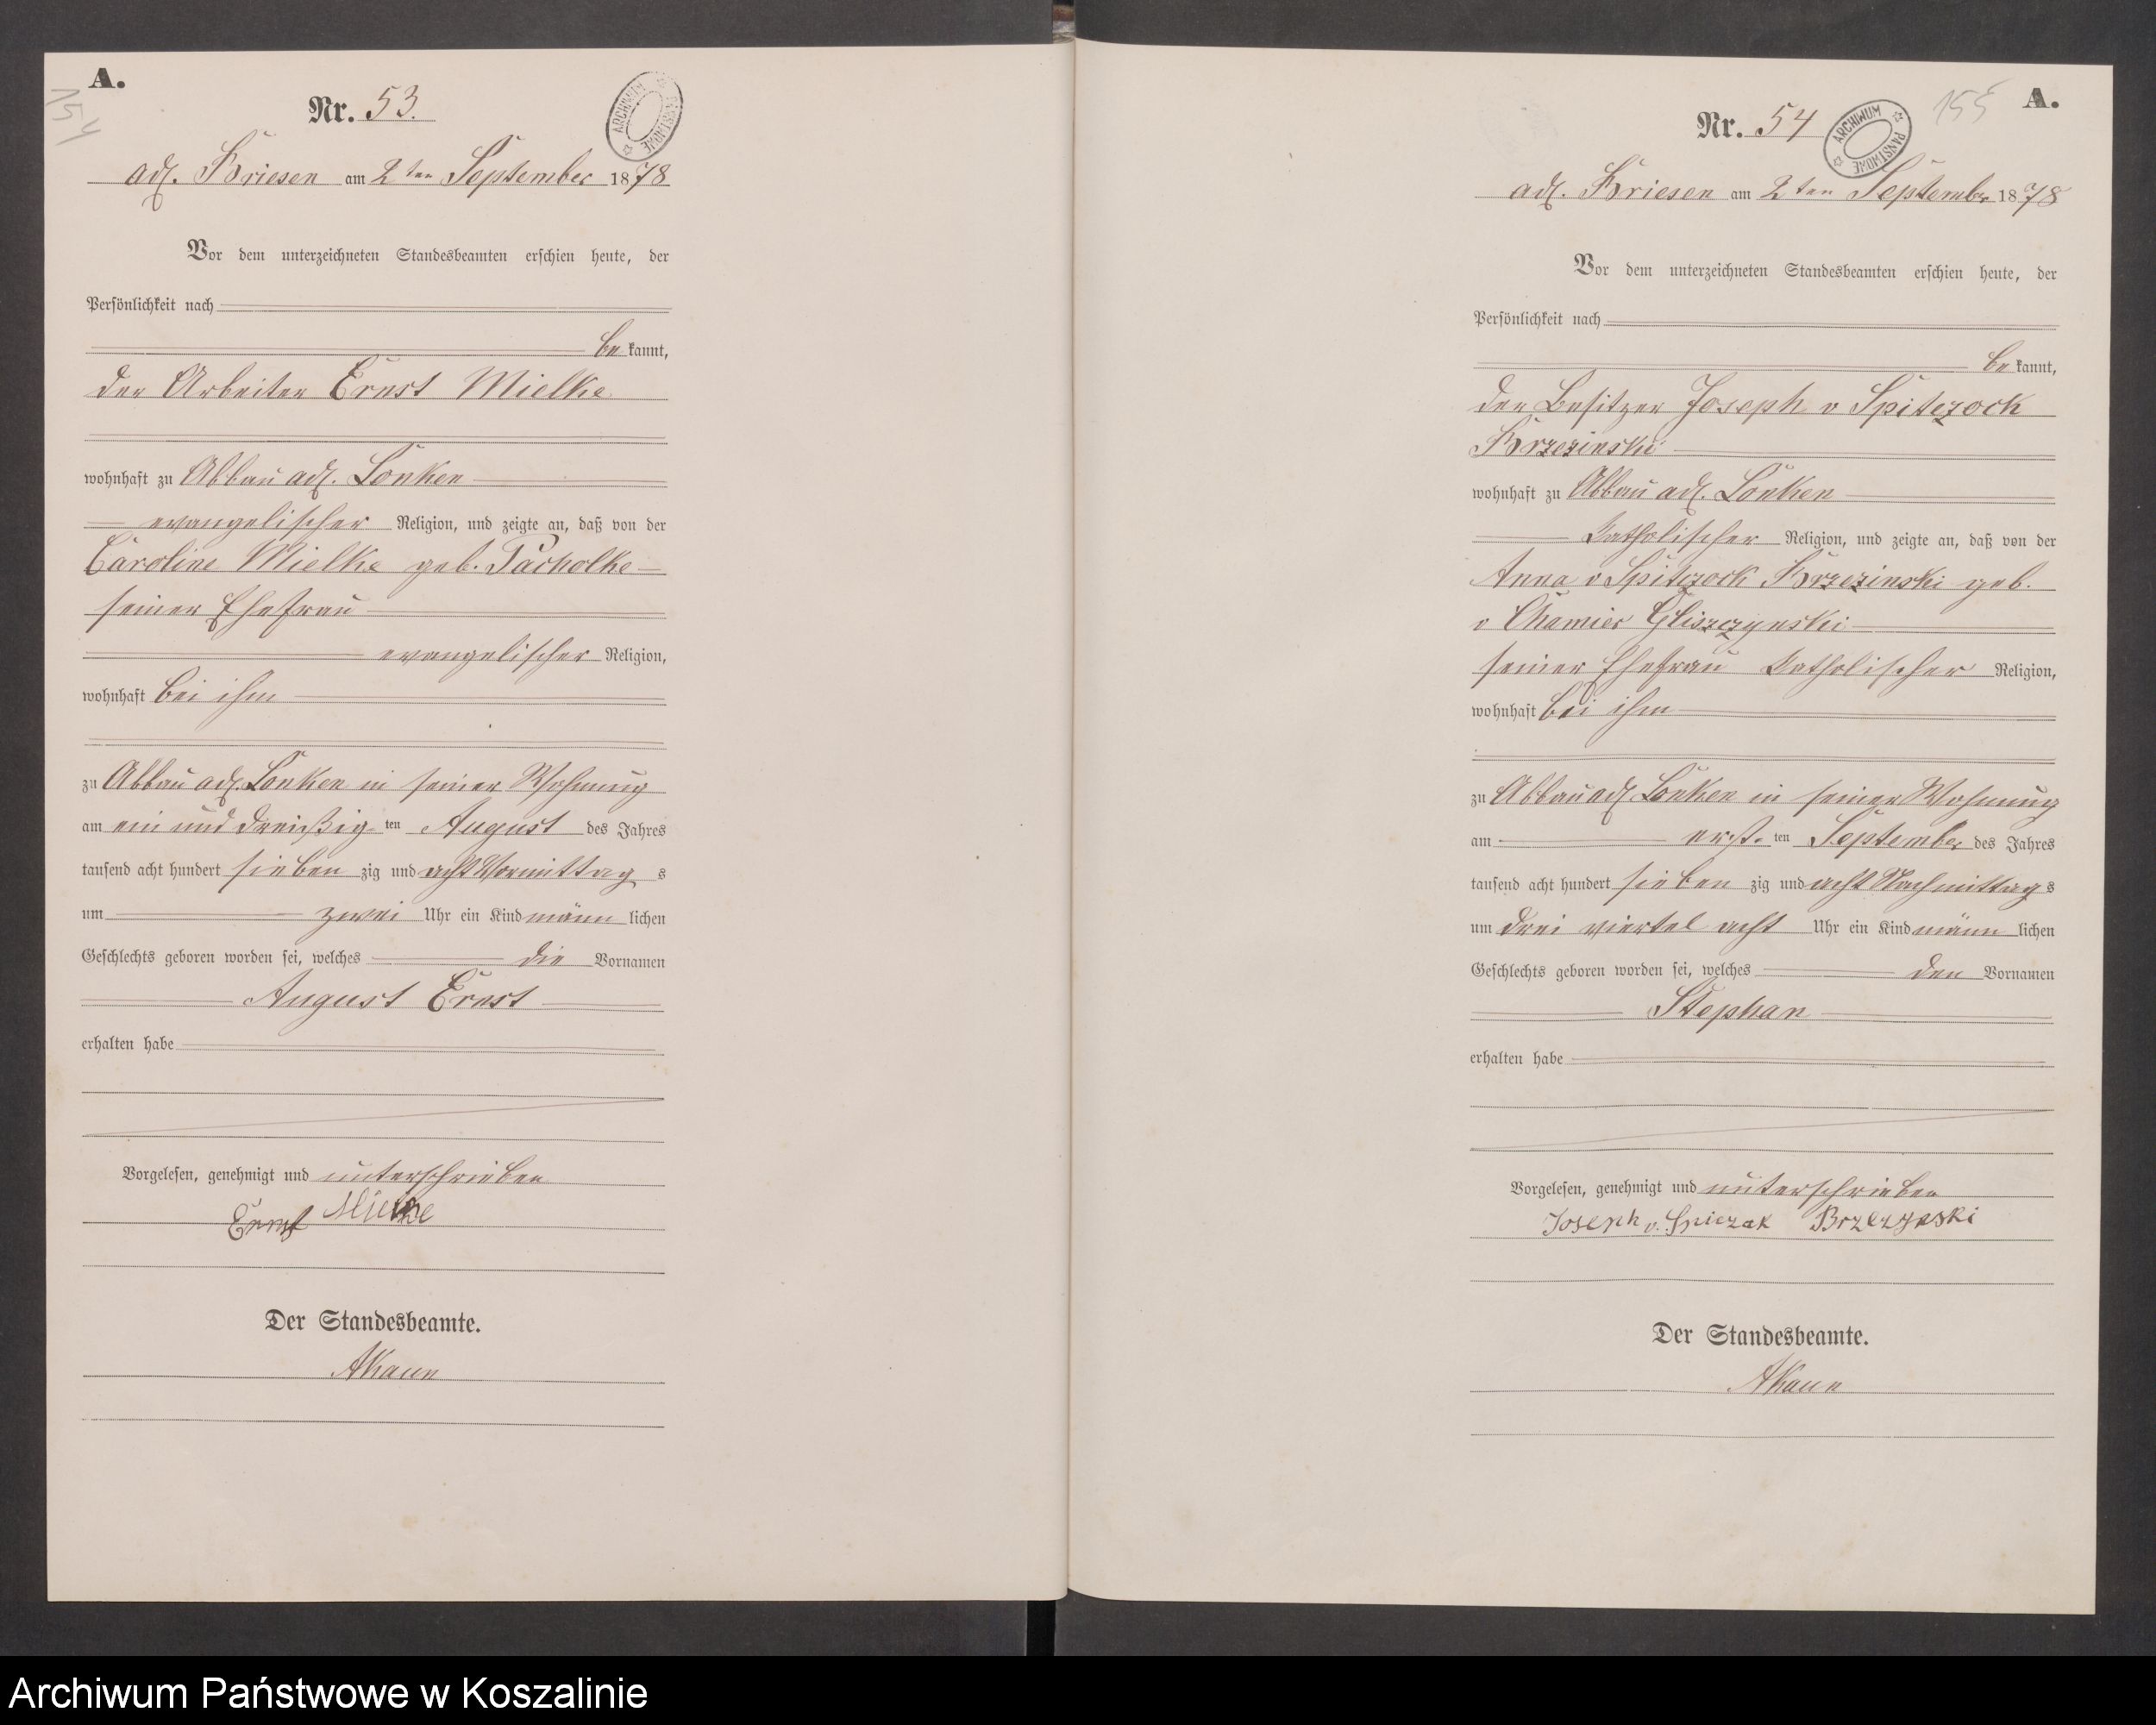 A.
154
Nr. 53.
ARCHIWUM PAŃSTWOWE
adl. Briesen am 2ten September 1878
Vor dem unterzeichneten Standesbeamten erschien heute, der
Persönlichkeit nach
be kannt,
der Arbeiter Ernst Mielke
wohnhaft zu Abbau adl. Lonken
evangelischer Religion, und zeigte an, daß von der
Caroline Mielke geb. Pacholke
seiner Ehefrau
evangelischer Religion,
wohnhaft bei ihm
zu Abbau adl. Lonken in seiner Wohnung
am ein und dreißig ten August des Jahres
tausend acht hundert sieben zig und acht Vormittag s
um zwei Uhr ein Kind männ lichen
Geschlechts geboren worden sei, welches die Vornamen
August Ernst
erhalten habe
Vorgelesen, genehmigt und unterschrieben
Ernst Mielke
Der Standesbeamte.
155
A.
Nr. 54
ARCHIWUM PAŃSTWOWE
adl. Briesen am 2ten September 1878
Vor dem unterzeichneten Standesbeamten erschien heute, der
Persönlichkeit nach
be kannt,
der Besitzer Joseph v Spitczock
Brzezinski
wohnhaft zu Abbau adl. Lonken
katholischer Religion, und zeigte an, daß von der
Anna v Spitczock Brzezinski geb.
v Chamier Gliszczynski
seiner Ehefrau katholischer Religion,
wohnhaft bei ihm
zu Abbau adl Lonken in seiner Wohnung
am erst. ten September des Jahres
tausend acht hundert sieben zig und acht Nachmittag s
um drei viertel acht Uhr ein Kind männ lichen
Geschlechts geboren worden sei, welches den Vornamen
Stephan
erhalten habe
Vorgelesen, genehmigt und unterschrieben
Joseph v. Spiczak Brzezynski
Der Standesbeamte.
Archiwum Państwowe w Koszalinie